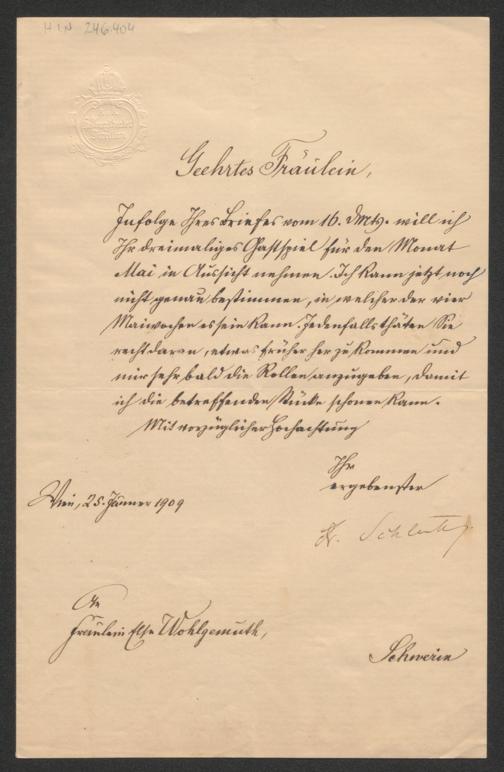 H.I.N. 246.404
Geehrtes Fräulein,
Infolge Ihres Briefes vom 16. d Mts. will ich
Ihr dreimaliges Gastspiel für den Monat
Mai in Aussicht nehmen. Ich kann jetzt noch
nicht genau bestimmen, in welcher der vier
Maiwochen es sein kann. Jedenfalls thäten Sie
recht daran, etwas früher her zu kommen und
mir sehr bald die Rollen anzugeben, damit
ich die betreffenden Stücke schonen kann.
Mit vorzüglicher Hochachtung
Ihr
ergebenster
Wien, 25. Jänner 1909
An
Fräulein Else Wohlgemuth,
Schwerin